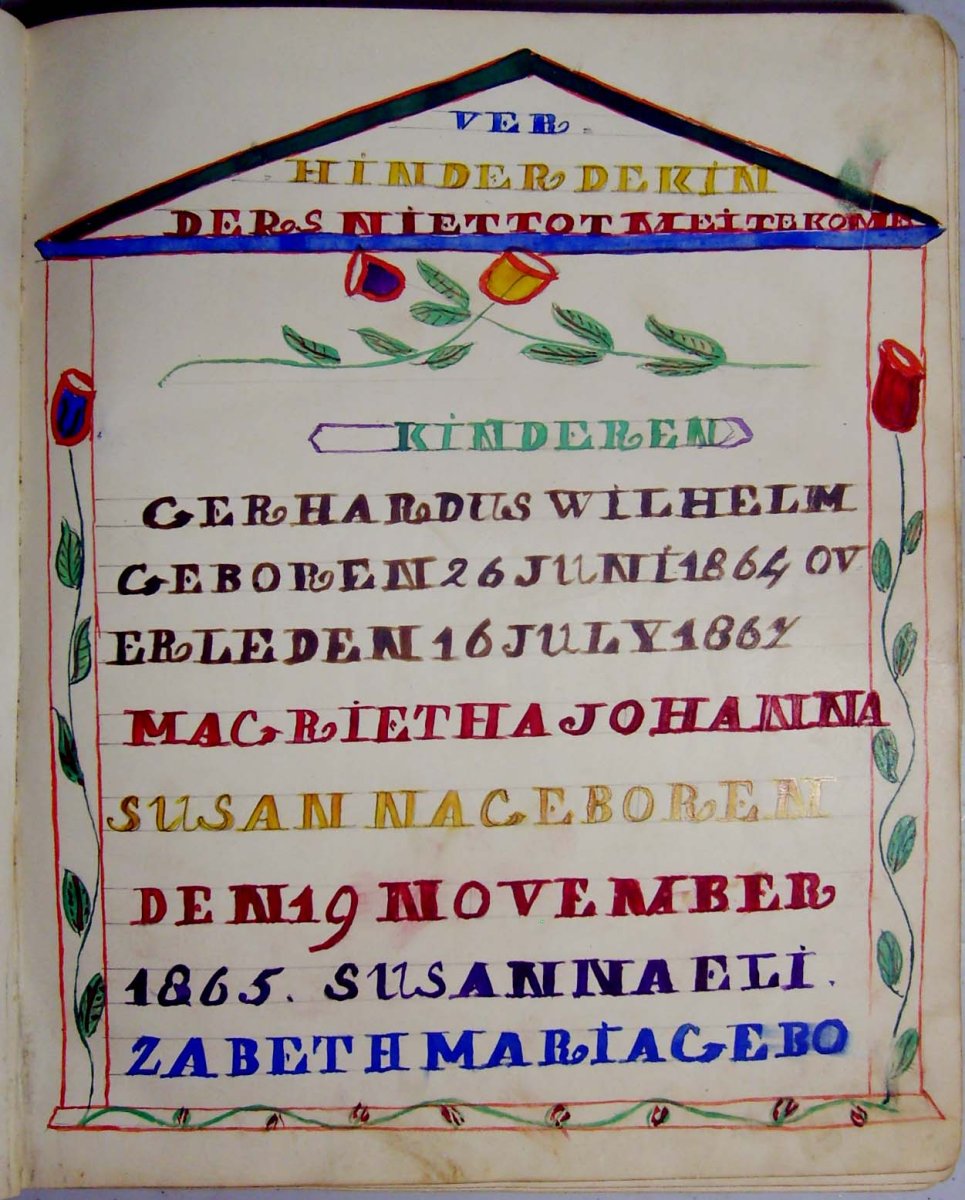 VER
HINDER DE KIN
DERS NIET TOT MEI TE
KINDEREN
GERHARDUS WILHELM
GEBOREN 26 JUNI 1864 OV
ERLEDEN 16 JULY
MAGRIETHA JOHANNA
SUSANNA GEBOREN
DEN 19 NOVEMBER
1865. SUSANNA ELI.
ZABETH MARIA GEBO